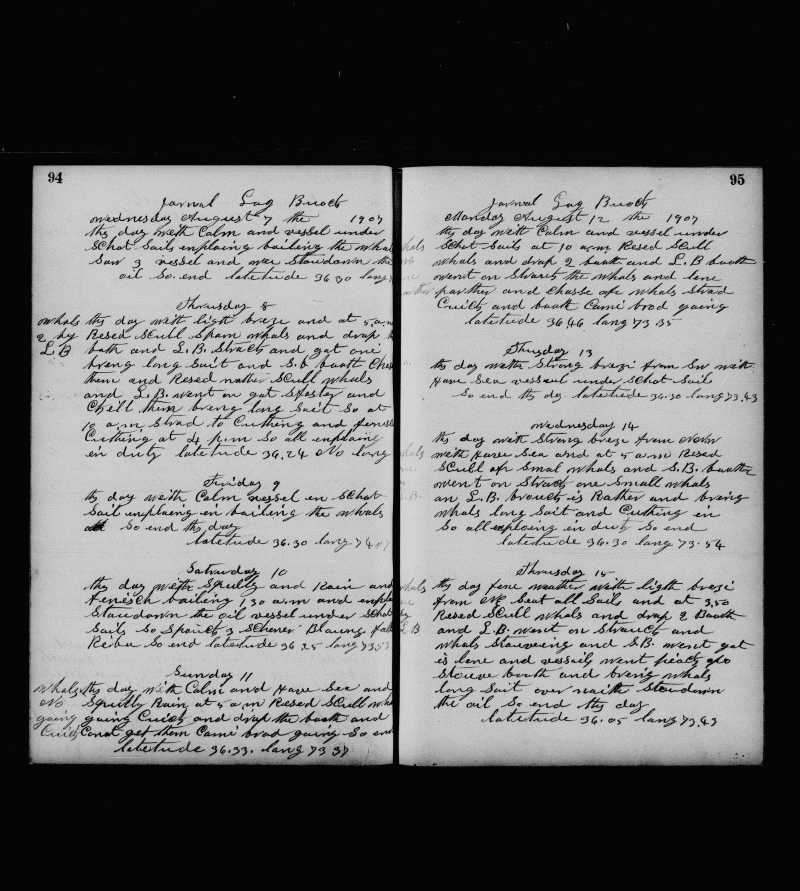 94
Jornal Log Buock
wednesday August 7 the 1907
thy day with Calm and vessel under
Schot Sails enploing boiling the whal
Saw 3 vessel and wee Stowdown the
oil So end latetude 36.30 lang
Thrusday 8
whals thy day with ligth breze and at 5 a.m
2 by Resed Scull Spam whals and drap
L B both and L.B. Stracty and gat one
breng long Suit and S.b booth Chas
them and Resed nather Scull whals
and L.B. went on gat Stasty and
Chell them breng long Sait So at
10 a.m Strad to Cutheng and fenish
Cutheng at 4 p.m So all enploing
ein duty latetude 36.24 No lang
Friday 9
thy day with Calm vessel en Schot
Sail enploeing en boileng the whals
So end thy day
latetude 36.30 lang 74.07
Saturday 10
thy day with Squlty and Rain and
fenesch boiling 1,30 a.m and enplo
Stowdown the oil vessel under Schot
Sails So Spoicts 3 Schener Blaung
So end latetude 36 25 lang 73
Sunday 11
whals thy day with Calm and Have Sea and
No Squlty Rain at 5 a.m Resed Scull wh
going going Cuich and drap the booth and
Cuich Cnot get them Cami brod going So en
latetude 36.33. lang 73 37
95
Jornal Log Buock
Monday August 12 the 1907
thy day with Calm and vessel under
Schot Sails at 10 a.m Resed Scull
whals and drap 2 booth and L.B booth
went on Stracts the whals and lene
parther and Chasse ofe whals Strad
Cuich and booth Cami brod going
latetude 36 46 lang 73 35
Thusday 13
thy day withe Strong brezi from Sw with
Have Sea vesseul under Schot Sail
So end thy day latetude 36.30 lang 73,43
wednesday 14
thy day with Strong breze from
with Have Sea and at 5 a.m Resed
Scull of Smal whals and S.B. boothe
went on Stracts one Small whals
an L.B. broucts is Rather and breng
whals long Sait and Cutheng in
So all exploeng in duty So end
latetude 36.30 lang 73.54
Thrusday 15
thy day fene weather with ligth brezi
from Seat all Sails and at 3,50
Resed Scull whals and drap 2 Booth
and L.B. went on Straucts and
whals Stauveing and S.B. went gat
is lene and vesseils went peacts
Stouve booth and breng whals
long Sait over naith Stowdown
the oil So end thy day
latetude 36.05 lang 73,43